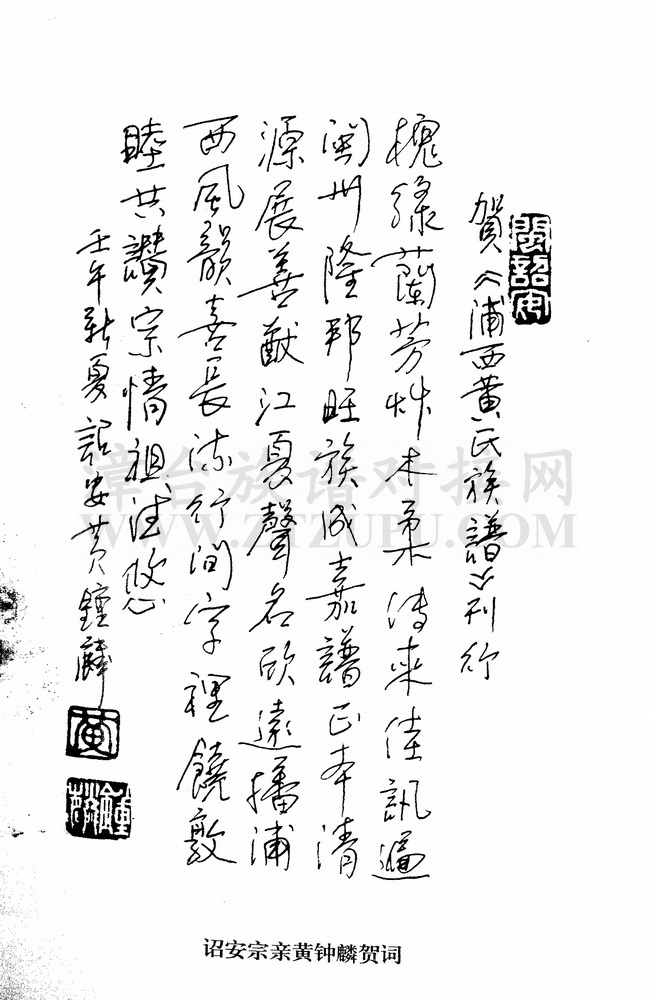 閩詔安
賀《浦西黄氏族譜》刊行
槐緑蘭芳艸木柔傳來佳訊遍
閩州隆邦旺族成嘉譜正本清
源展善猷江夏聲名欣遠播浦
西風韻喜長流行间字裡饒敦
睦共讚宗情祖澤悠
壬午新夏詔安黄鐘麟
黄
鐘麟
漳台族谱对接网
WWW.ZTZUPU.COM
诏安宗亲黄钟麟贺词